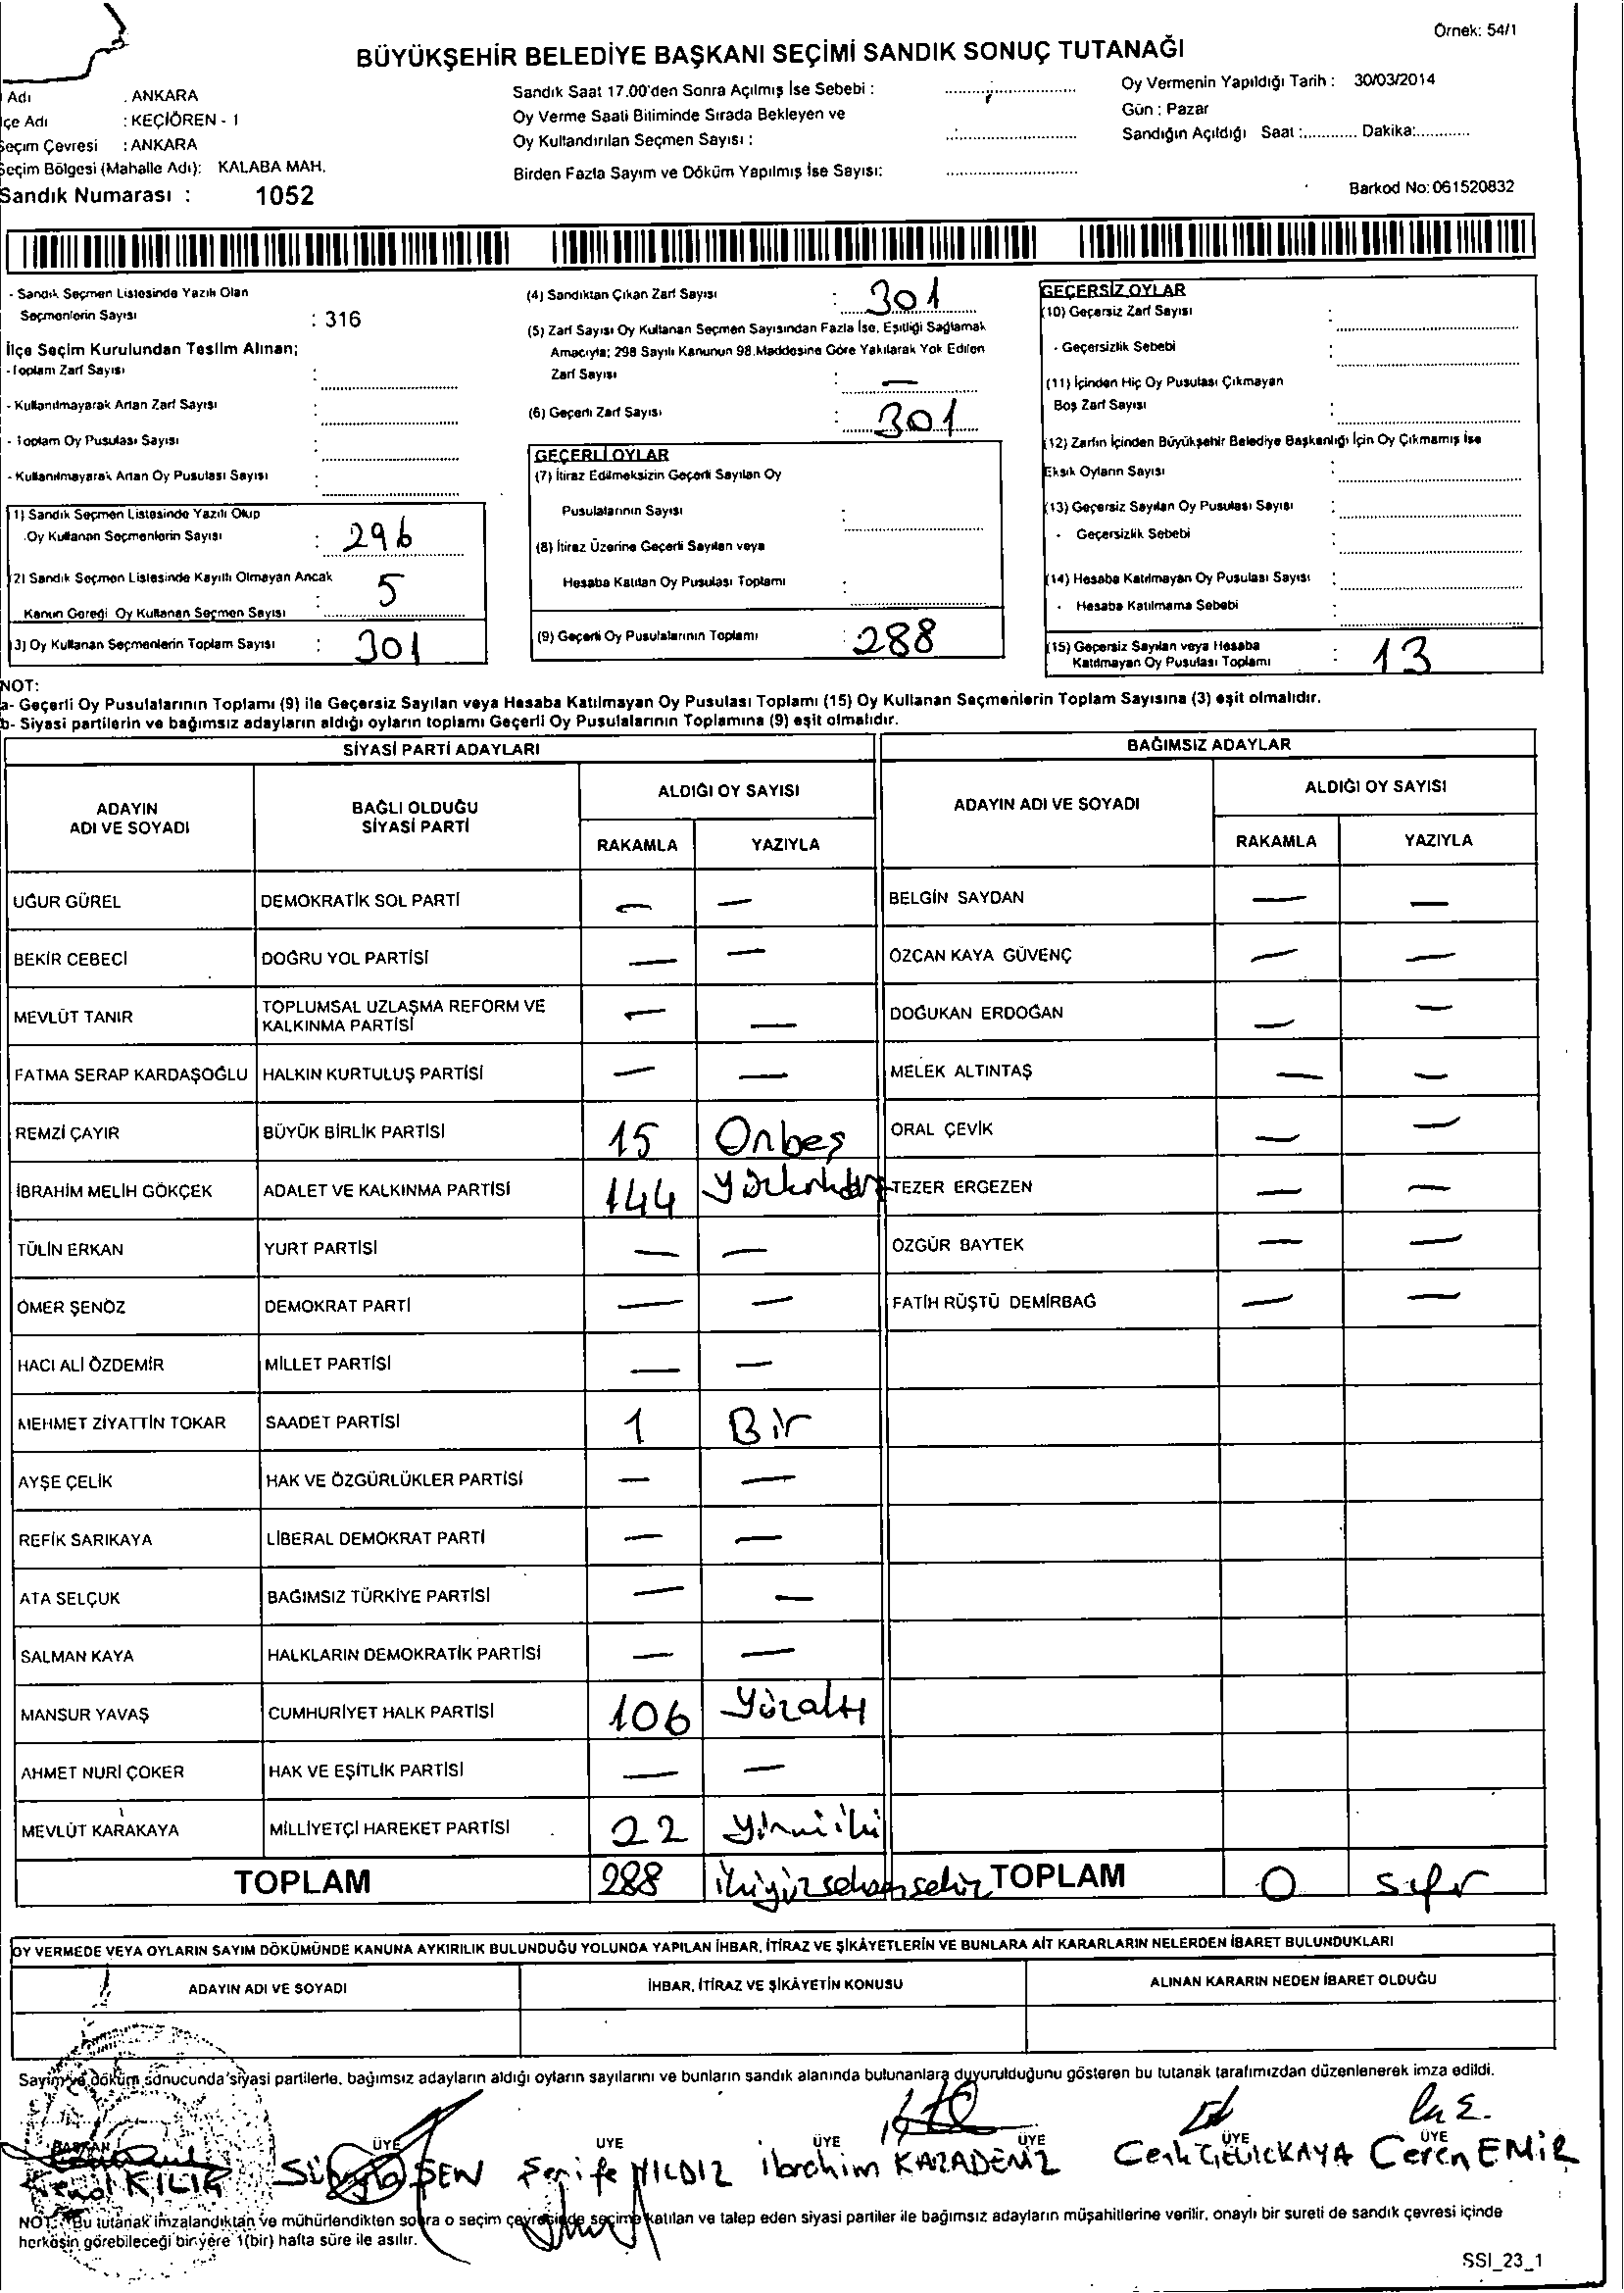 Örnek: 54/1
BÜYÜKŞEHİR BELEDİYE BAŞKANI SEÇİMİ SANDIK SONUÇ TUTANAĞI
Adı : ANKARA
çe Adı : KEÇİÖREN - 1
Seçim Çevresi : ANKARA
Seçim Bölgesi (Mahalle Adı): KALABA MAH.
Sandık Numarası : 1052
Sandık Saat 17.00'den Sonra Açılmış İse Sebebi :
Oy Verme Saati Bitiminde Sırada Bekleyen ve
Oy Kullandırılan Seçmen Sayısı :
Birden Fazla Sayım ve Döküm Yapılmış İse Sayısı:
Oy Vermenin Yapıldığı Tarih : 30/03/2014
Gün : Pazar
Sandığın Açıldığı Saat :............ Dakika:...........
Barkod No: 061520832
- Sandık Seçmen Listesinde Yazılı Olan
Seçmenlerin Sayısı : 316
İlçe Seçim Kurulundan Teslim Alınan;
- Toplam Zarf Sayısı :
- Kullanılmayarak Artan Zarf Sayısı :
- Toplam Oy Pusulası Sayısı :
- Kullanılmayarak Artan Oy Pusulası Sayısı :
(1) Sandık Seçmen Listesinde Yazılı Olup
Oy Kullanan Seçmenlerin Sayısı : 296
(2) Sandık Seçmen Listesinde Kayıtlı Olmayan Ancak
Kanun Gereği Oy Kullanan Seçmen Sayısı : 5
(3) Oy Kullanan Seçmenlerin Toplam Sayısı : 301
(4) Sandıktan Çıkan Zarf Sayısı : 301
(5) Zarf Sayısı Oy Kullanan Seçmen Sayısından Fazla İse, Eşitliği Sağlamak
Amacıyla; 298 Sayılı Kanunun 98.Maddesine Göre Yakılarak Yok Edilen
Zarf Sayısı : —
(6) Geçerli Zarf Sayısı : 301
GEÇERLİ OYLAR
(7) İtiraz Edilmeksizin Geçerli Sayılan Oy
Pusulalarının Sayısı :
(8) İtiraz Üzerine Geçerli Sayılan veya
Hesaba Katılan Oy Pusulası Toplamı :
(9) Geçerli Oy Pusulalarının Toplamı : 288
GEÇERSİZ OYLAR
(10) Geçersiz Zarf Sayısı :
- Geçersizlik Sebebi :
(11) İçinden Hiç Oy Pusulası Çıkmayan
Boş Zarf Sayısı :
(12) Zarfın İçinden Büyükşehir Belediye Başkanlığı İçin Oy Çıkmamış İse
Eksik Oyların Sayısı :
(13) Geçersiz Sayılan Oy Pusulası Sayısı :
- Geçersizlik Sebebi :
(14) Hesaba Katılmayan Oy Pusulası Sayısı :
- Hesaba Katılmama Sebebi :
(15) Geçersiz Sayılan veya Hesaba
Katılmayan Oy Pusulası Toplamı : 13
NOT:
a- Geçerli Oy Pusulalarının Toplamı (9) ile Geçersiz Sayılan veya Hesaba Katılmayan Oy Pusulası Toplamı (15) Oy Kullanan Seçmenlerin Toplam Sayısına (3) eşit olmalıdır.
b- Siyasi partilerin ve bağımsız adayların aldığı oyların toplamı Geçerli Oy Pusulalarının Toplamına (9) eşit olmalıdır.
SİYASİ PARTİ ADAYLARI
ADAYIN ADI VE SOYADI
BAĞLI OLDUĞU SİYASİ PARTİ
ALDIĞI OY SAYISI
RAKAMLA YAZIYLA
UĞUR GÜREL DEMOKRATİK SOL PARTİ — —
BEKİR CEBECİ DOĞRU YOL PARTİSİ — —
MEVLÜT TANIR TOPLUMSAL UZLAŞMA REFORM VE KALKINMA PARTİSİ — —
FATMA SERAP KARDAŞOĞLU HALKIN KURTULUŞ PARTİSİ — —
REMZİ ÇAYIR BÜYÜK BİRLİK PARTİSİ 15 Onbeş
İBRAHİM MELİH GÖKÇEK ADALET VE KALKINMA PARTİSİ 144
TÜLİN ERKAN YURT PARTİSİ — —
ÖMER ŞENÖZ DEMOKRAT PARTİ — —
HACI ALİ ÖZDEMİR MİLLET PARTİSİ — —
MEHMET ZİYATTİN TOKAR SAADET PARTİSİ 1 Bir
AYŞE ÇELİK HAK VE ÖZGÜRLÜKLER PARTİSİ — —
REFİK SARIKAYA LİBERAL DEMOKRAT PARTİ — —
ATA SELÇUK BAĞIMSIZ TÜRKİYE PARTİSİ — —
SALMAN KAYA HALKLARIN DEMOKRATİK PARTİSİ — —
MANSUR YAVAŞ CUMHURİYET HALK PARTİSİ 106 Yüzaltı
AHMET NURİ ÇOKER HAK VE EŞİTLİK PARTİSİ — —
MEVLÜT KARAKAYA MİLLİYETÇİ HAREKET PARTİSİ 22 Yirmiiki
TOPLAM 288 ikiyüzseksensekiz
BAĞIMSIZ ADAYLAR
ADAYIN ADI VE SOYADI
ALDIĞI OY SAYISI
RAKAMLA YAZIYLA
BELGİN SAYDAN — —
ÖZCAN KAYA GÜVENÇ — —
DOĞUKAN ERDOĞAN — —
MELEK ALTINTAŞ — —
ORAL ÇEVİK — —
TEZER ERGEZEN — —
ÖZGÜR BAYTEK — —
FATİH RÜŞTÜ DEMİRBAĞ — —
TOPLAM 0 sıfır
OY VERMEDE VEYA OYLARIN SAYIM DÖKÜMÜNDE KANUNA AYKIRILIK BULUNDUĞU YOLUNDA YAPILAN İHBAR, İTİRAZ VE ŞİKÂYETLERİN VE BUNLARA AİT KARARLARIN NELERDEN İBARET BULUNDUKLARI
ADAYIN ADI VE SOYADI İHBAR, İTİRAZ VE ŞİKÂYETİN KONUSU ALINAN KARARIN NEDEN İBARET OLDUĞU
Sayım ve döküm sonucunda siyasi partilerle, bağımsız adayların aldığı oyların sayılarını ve bunların sandık alanında bulunanlara duyurulduğunu gösteren bu tutanak tarafımızdan düzenlenerek imza edildi.
BAŞKAN ÜYE ÜYE ÜYE ÜYE ÜYE ÜYE
KILIÇ ŞEN Şerife YILDIZ İbrahim KARADENİZ Ceren EMİR
NOT: Bu tutanak imzalandıktan ve mühürlendikten sonra o seçim çevresinde seçime katılan ve talep eden siyasi partiler ile bağımsız adayların müşahitlerine verilir, onaylı bir sureti de sandık çevresi içinde
herkesin görebileceği bir yere 1(bir) hafta süre ile asılır.
SSI_23_1